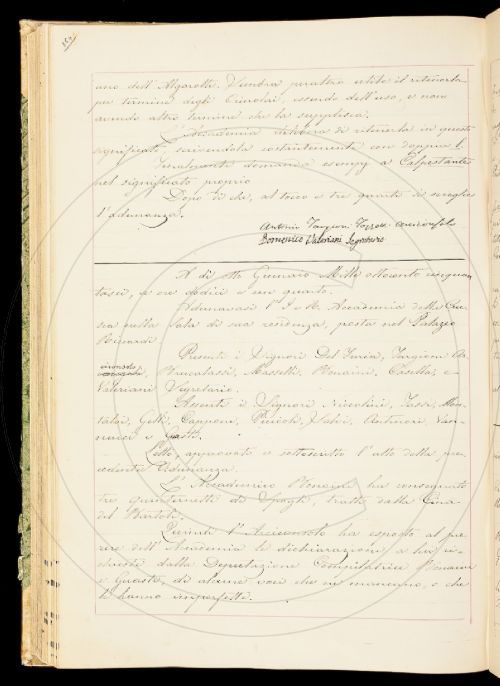 uno dell'Algarotti. Sembra peraltro utile il ritenerla
per termine degli Crivolai, essendo dell'uso, e non
avendo altro termine che la supplisca.
L'Accademia delibera di ritenerla in questo
significato, scrivendola costantemente con doppia
Finalmente domanda esempj a Calpestante
nel significato proprio
Dopo di che, al tocco e tre quarti si scioglie
l'adunanza.
Antonio Targioni Tozzetti Arciconsolo
Domenico Valeriani Segretario
A dì otto Gennaio Mille ottocento cinquan
tasei, a ore dodici e un quarto.
Adunavasi l'I. e R. Accademia della Cru
sca nella Sala di sua residenza, posta nel Palazzo
Riccardi.
Presenti i Signori Del Furia, Targioni
Arciconsolo, Brucalassi, Masselli, Bonaini, Casella, e
Valeriani Segretario.
Assenti i Signori Niccolini, Rossi, Mon
talvi, Gelli, Capponi, Puccioli, Salvi, Antinori, Van
nucci e Guasti.
Letto, approvato e sottoscritto l'atto della pre
cedente Adunanza.
L'Accademico Bonaini ha consegnato
tre quadernetti di Spogli, tratti dalla Cina
del Bartoli.
Quindi l'Arciconsolo ha esposto al pa
rere dell'Accademia le dichiarazioni, a lui ri
chieste dalla Deputazione Compilatrice Bonaini
e Guasti, di alcune voci che vi mancano, o che
le hanno imperfette.